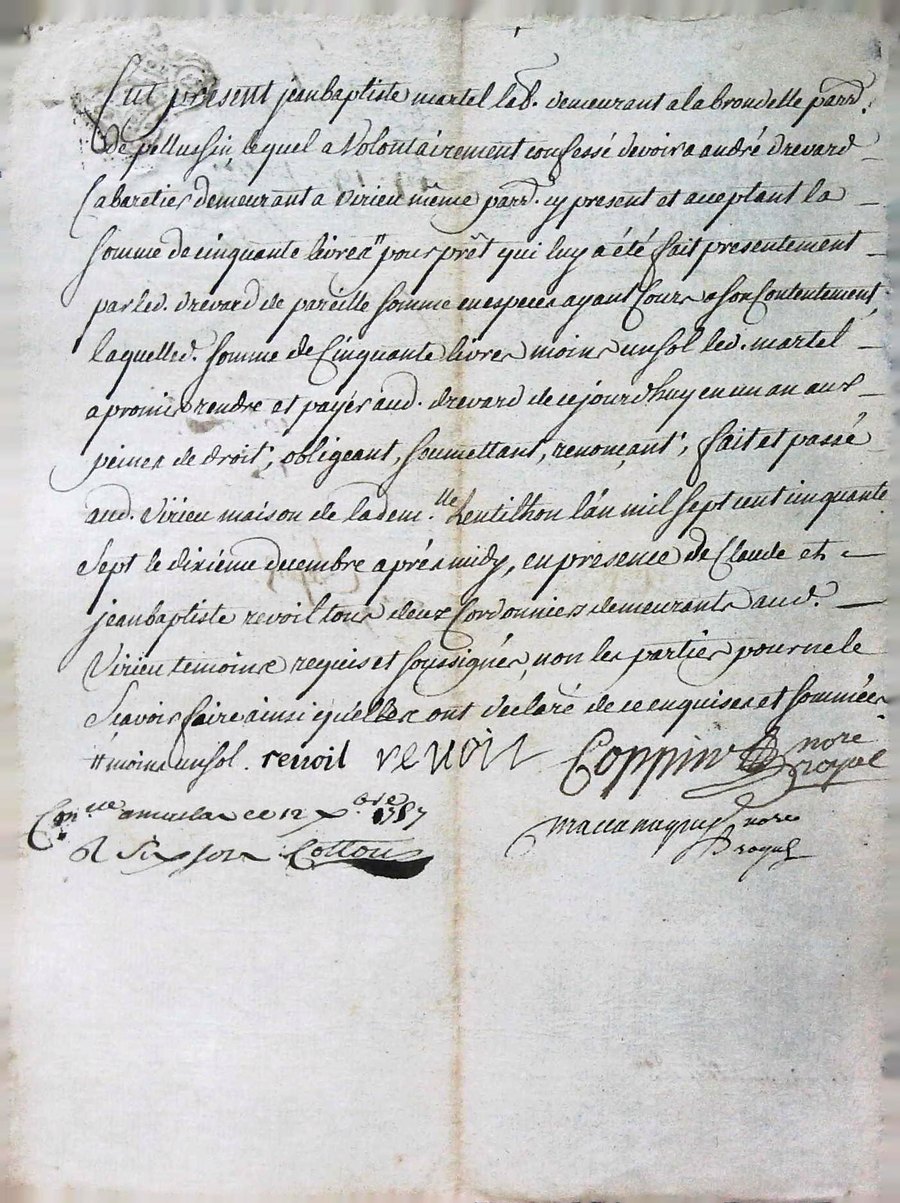 fut présent jeanbaptiste martel lab. demeurant a la brondelle parr.
de pellussin, lequel a Volontairement confessé devoir a andré drevard
Cabaretier demeurant a Virieu même parr. cy present et aceptant la
somme de cinquante livres # pour prêt qui luy a été fait presentement
par led. drevard de pareille somme en especes ayant Cours a son Contentement,
laquelled. somme de Cinquante livres moins un sol led. martel
a promis rendre et payer aud. drevard de ce jourd'huy en un an aux
peines de droit, obligeant, soumettant, renonçant, fait et passé
aud. Virieu maison de la dem.lle Lentilhon l'an mil sept cent cinquante
Sept le dixiéme decembre aprés midy, en présence de Claude et
jeanbaptiste revoil tous deux Cordonniers demeurants aud.
Virieu temoins requis et soussignés, non les parties pour ne le
Scavoir faire ainsi qu'elles ont declaré de ce enquises et sommées
# moins un sol. revoil revoil Coppin nore royal
ce 12 xbre 1757 nore royal
R Six sols Cotton